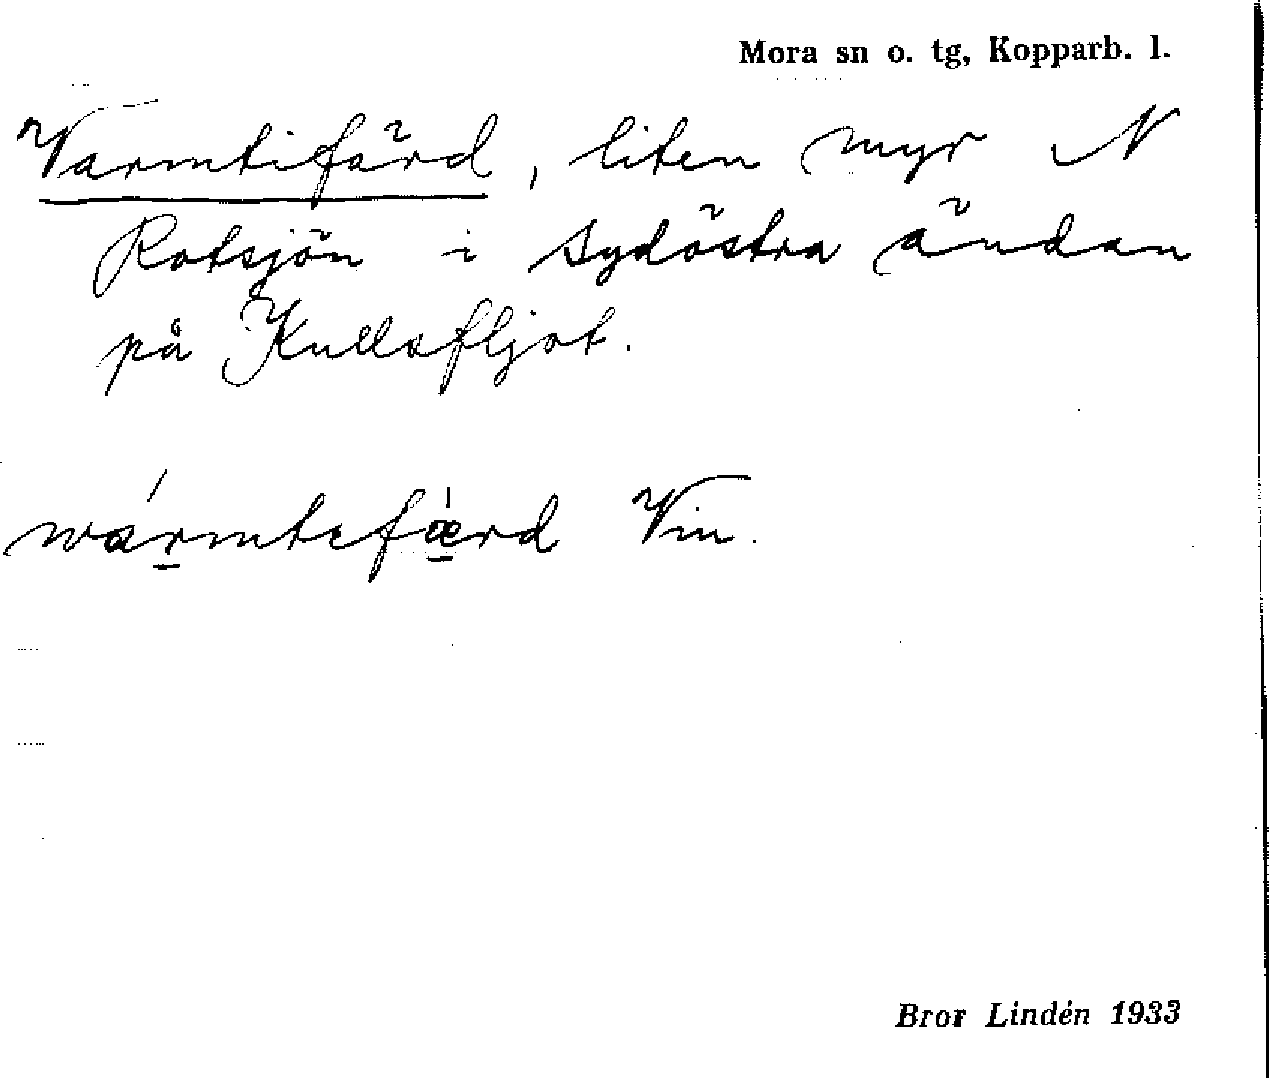 Mora sn o. tg, Kopparb. l.
Varmtifärd, liten myr N
Rotsjön i sydöstra ändan
på Kullafljot.
wármtefǽrd Vin.
Bror Lindén 1933